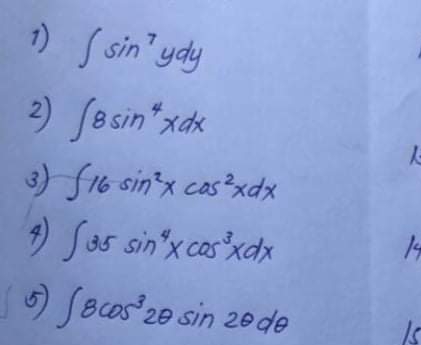 1) ∫ sin⁷ y dy
2) ∫ 8 sin⁴ x dx
3) ∫ 16 sin² x cos² x dx
4) ∫ 35 sin⁴ x cos³ x dx
5) ∫ 8 cos³ 2θ sin 2θ dθ
14
15